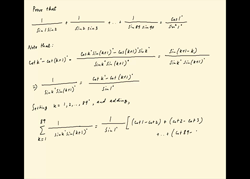 Prove that
1/(sin1 sin2) + 1/(sin2 sin3) + ... + 1/(sin89 sin90) = cos1°/sin²1°
Note that:
cotk° - cot(k+1)° = (cosk° sin(k+1)° - cos(k+1)° sink°)/(sink° sin(k+1)°) = sin(k+1-k)/(sink° sin(k+1)°)
⇒ 1/(sink° sin(k+1)°) = (cotk° - cot(k+1)°)/sin1°
Setting k = 1, 2, ..., 89°, and adding,
89
∑ 1/(sink° sin(k+1)°) = 1/sin1° [(cot1 - cot2) + (cot2 - cot3)
k=1
+ ... + (cot89 -